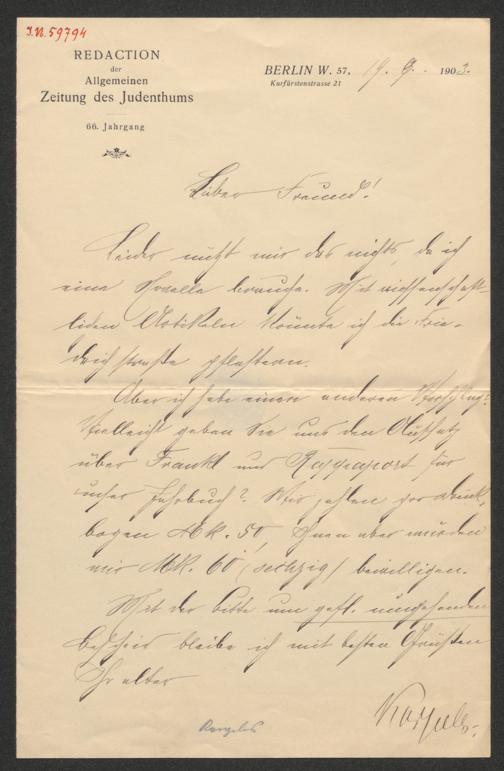 J.N. 59794
REDACTION
der
Allgemeinen
Zeitung des Judenthums
66. Jahrgang
BERLIN W. 57, 19. 9. 1903.
Kurfürstenstrasse 21
Lieber Freund!
Leider nützt mir das nichts, da ich
eine Novelle brauche. Mit wissenschaft-
lichen Artikeln könnte ich die Frie-
drichstraße pflastern.
Aber ich habe einen anderen Vorschlag:
Vielleicht geben Sie uns den Aufsatz
über Frankl und Rappaport für
unser Jahrbuch? Wir zahlen pro Druck-
bogen Mk. 50, Ihnen aber würden
wir Mk. 60 (sechzig) bewilligen.
Mit der Bitte um gefl. umgehenden
Bescheid bleibe ich mit besten Grüßen
Ihr alter
Karpeles.
Karpeles